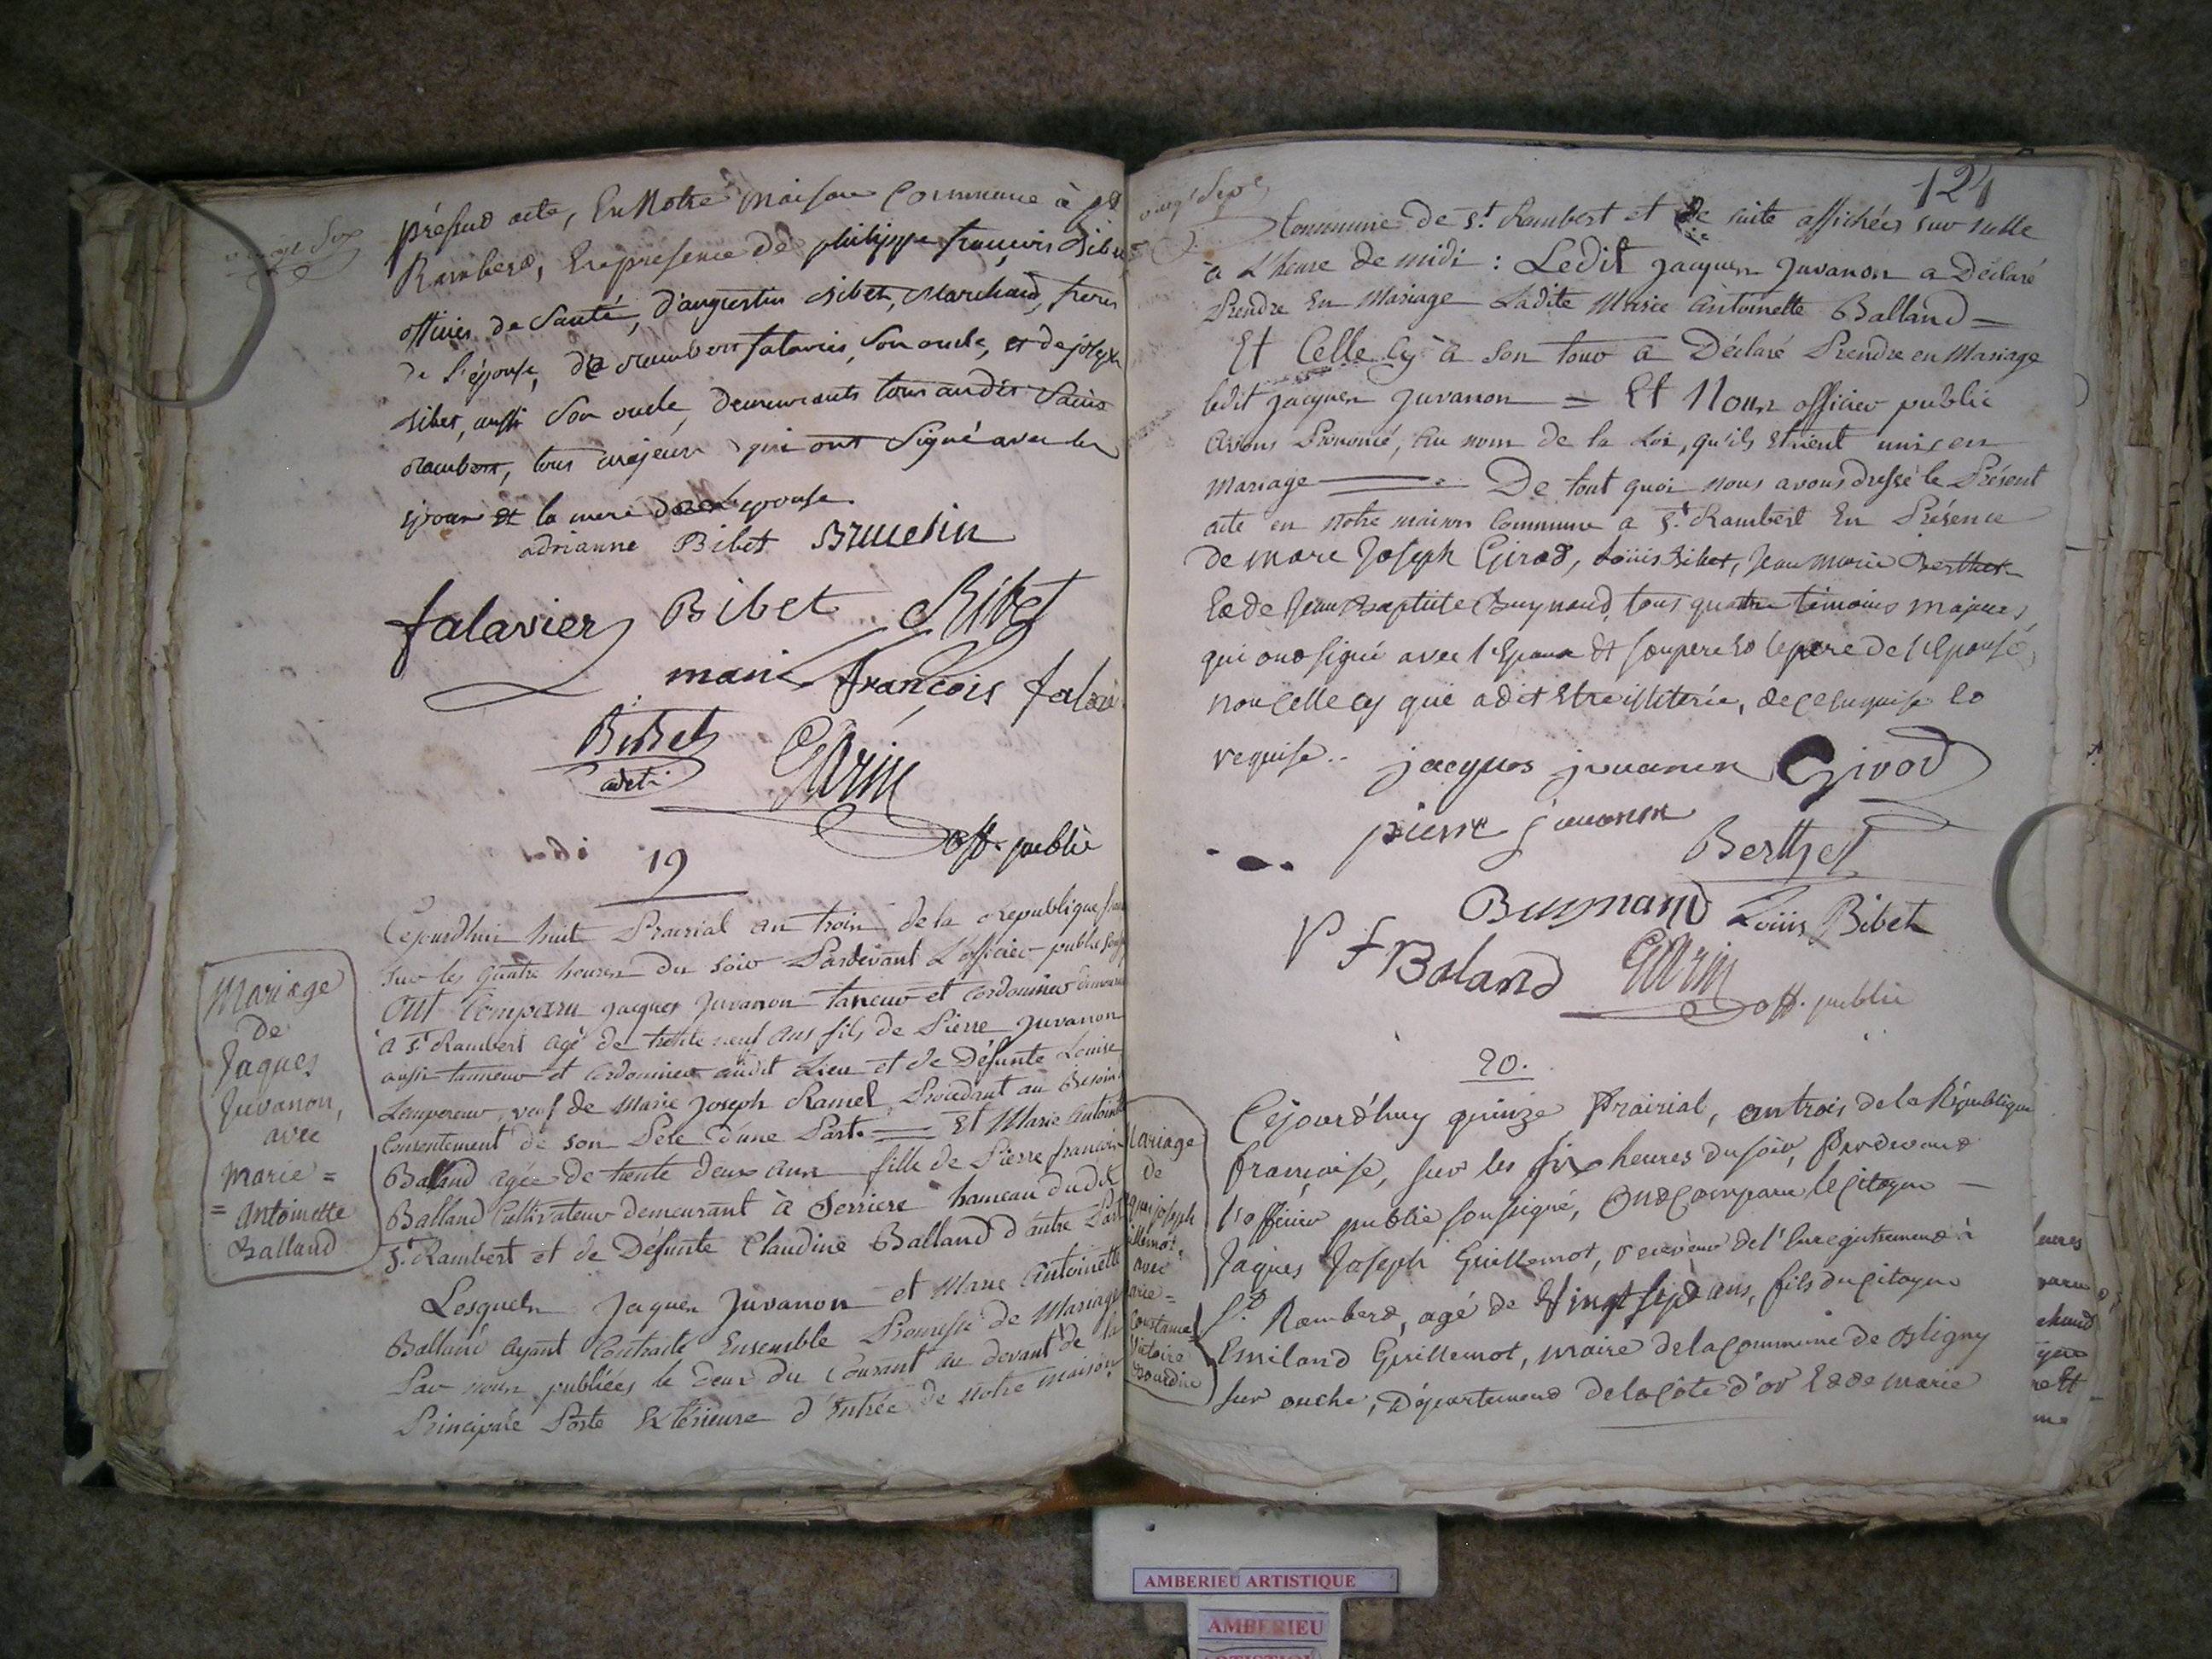 présend acte, En Notre maison Commune à St
Rambert, En présence de philippe françois Bibet
officier de Santé, d'augustin Bibet, Marchand, freres
de L'épouse, de rambert falavier, Son oncle, et de joseph
Bibet, aussi Son oncle, demeurants tous audit Saint
Rambert, tous majeurs qui ont Signé avec les
époux et la mere de L'epouse
adrianne Bibet Brucelin
falavier Bibet Bibet
marie françois falavi
Bibet
cadet
Garin
off. public
19
Mariage
de
Jaques
Juvanon,
avec
Marie =
= Antoinette
Balland
Cejourdhui huit Prairial an trois de la Republique
Sur les quatre heures du soir Pardevant L'officier public
Ont Comparu jacques Juvanon taneur et Cordonnier
à St Rambert agé de trente neuf ans fils de Pierre Juvanon
aussi tanneur et Cordonnier audit Lieu et de Défunte Louise
Lempereur, veuf de Marie Joseph Ramel, Procédant au Besoin
Consentement de son Pere d'une Part. = Et Marie Antoinette
Balland agée de trente deux ans fille de Pierre françois
Balland Cultivateur demeurant à Serriere hameau dudit
St Rambert et de Défunte Claudine Balland d'autre Part
Lesquels Jaques Juvanon et Marie Antoinette
Balland ayant Contracté Ensemble Promesse de Mariage
Par nous publiées le deux du Courant au devant de la
Principale Porte Extérieure d'Entrée de notre maison
121
Commune de St. Rambert et de suite affichées sur icelle
à L'heure de midi : Ledit Jacques Juvanon a Déclaré
Prendre En Mariage Ladite Marie Antoinette Balland =
Et Celle Cy à Son tour a Déclaré Prendre en Mariage
ledit Jacques Juvanon = Et Nous officier public
avons Prononcé, Au nom de la Loi, qu'ils Etoient unis en
Mariage = De tout quoi nous avons dressé le Présent
acte en Notre maison Commune a St. Rambert En Présence
de marc Joseph Girod, Loüis Bibet, Jean marie Berthet
Et de Jean Baptiste Buynand, tous quatre témoins majeurs,
qui ont signé avec l'Epoux Et son pere Et le pere de l'Epouse,
non Celle cy qui a dit Etre illiterée, de ce enquise Et
requise..
jacques juuanon Girod
pierre juuanon
Berthet
Buynand Loüis Bibet
P f Baland Garin
off. public
20.
Mariage
de
Jaques joseph
Guillemot,
avec
Marie =
Constance
Victoire
Cejourd'huy quinze Prairial, an trois de la République
française, sur les six heures du soir, Pardevant
l'officier public soussigné, Ont Comparu le Citoyen
Jaques Joseph Guillemot, receveur de l'Enregistrement à
St. Rambert, agé de Vingt sept ans, fils du Citoyen
Emiland Guillemot, maire de la Commune de Bligny
sur ouche, Département de la Côte d'or Et de marie
AMBERIEU ARTISTIQUE
AMBERIEU
ARTISTIQUE